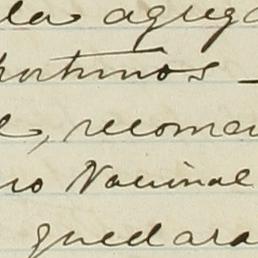 la agrega
portunos
, recomen
no Nacional
quedara